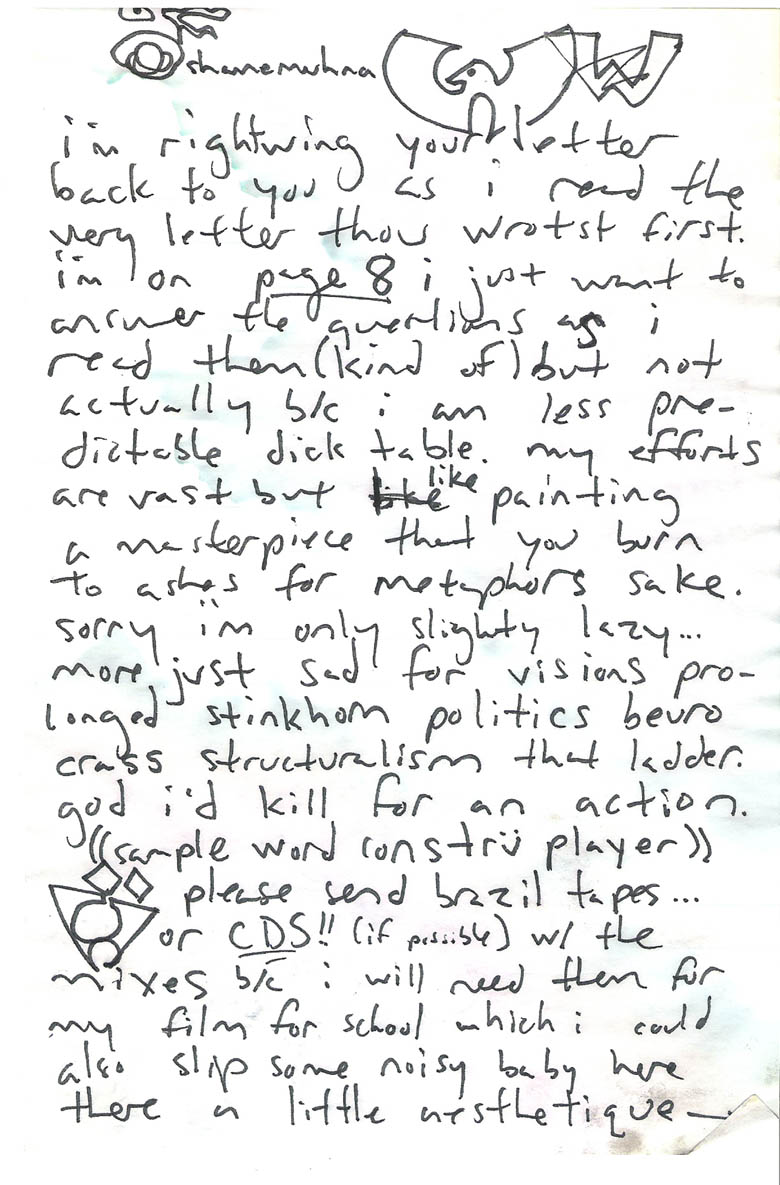 i'm rightwing your letter
back to you as i read the
very letter thou wrotst first.
i'm on page 8 i just want to
answer the questions as i
read them (kind of) but not
actually b/c i am less pre-
dictable dick table. my efforts
are vast but like painting
a masterpiece that you burn
to ashes for metaphors sake.
sorry i'm only slighty lazy...
more just sad for visions pro-
longed stinkhorn politics beuro
crass structuralism that ladder.
god i'd kill for an action.
((sample word constrü player))
please send brazil tapes...
or CDS!! (if possible) w/ the
mixes b/c i will need them for
my film for school which i could
also slip some noisy baby here
there a little aesthetique —